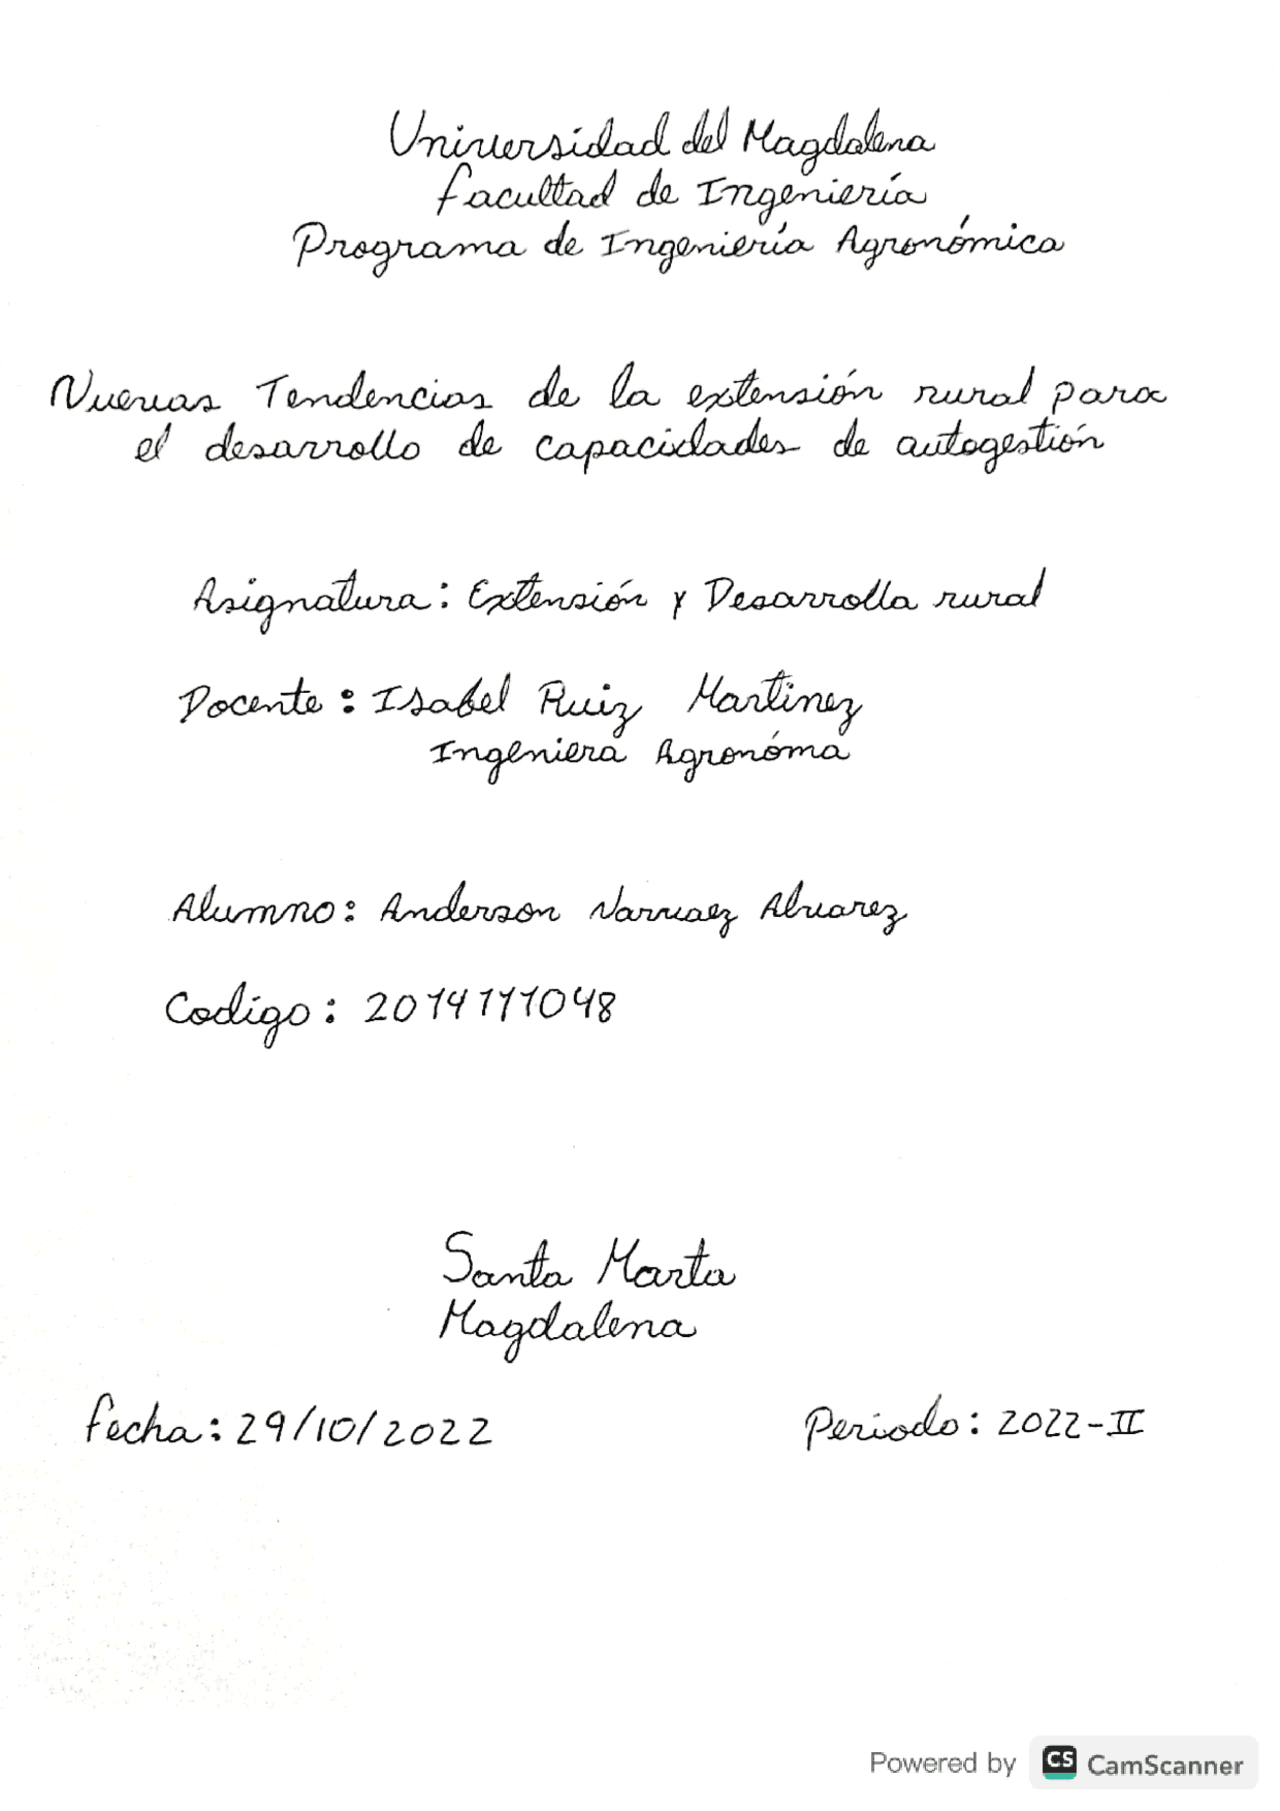 Universidad del Magdalena
Facultad de Ingeniería
Programa de Ingeniería Agronómica
Nuevas Tendencias de la extensión rural para
el desarrollo de capacidades de autogestión
Asignatura: Extensión y Desarrollo rural
Docente: Isabel Ruiz Martinez
Ingeniera Agronóma
Alumno: Anderson Narvaez Alvarez
Codigo: 2014111048
Santa Marta
Magdalena
Fecha: 29/10/2022
Periodo: 2022-II
Powered by CS CamScanner